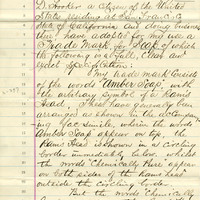 D. Hooker a citizen of the United
State residing at San Francisco
of California and doing business
that I have adopted for my use a
Trade Mark for Soap of which
the following is a full, clear and
exact Specification:
My trade mark consists
of the words "Amber Soap", with
the arbitrary symbol of a Rams
Head. These have generally been
arranged as shown in the accompan
ing facsimile, wherein the words
Amber Soap appear on top, the
Rams Head is shown in a circling
border immediately below, whilst
the words Chemically Pure appear
on both sides of the rams head
outside the circling border.
But the words Chemically